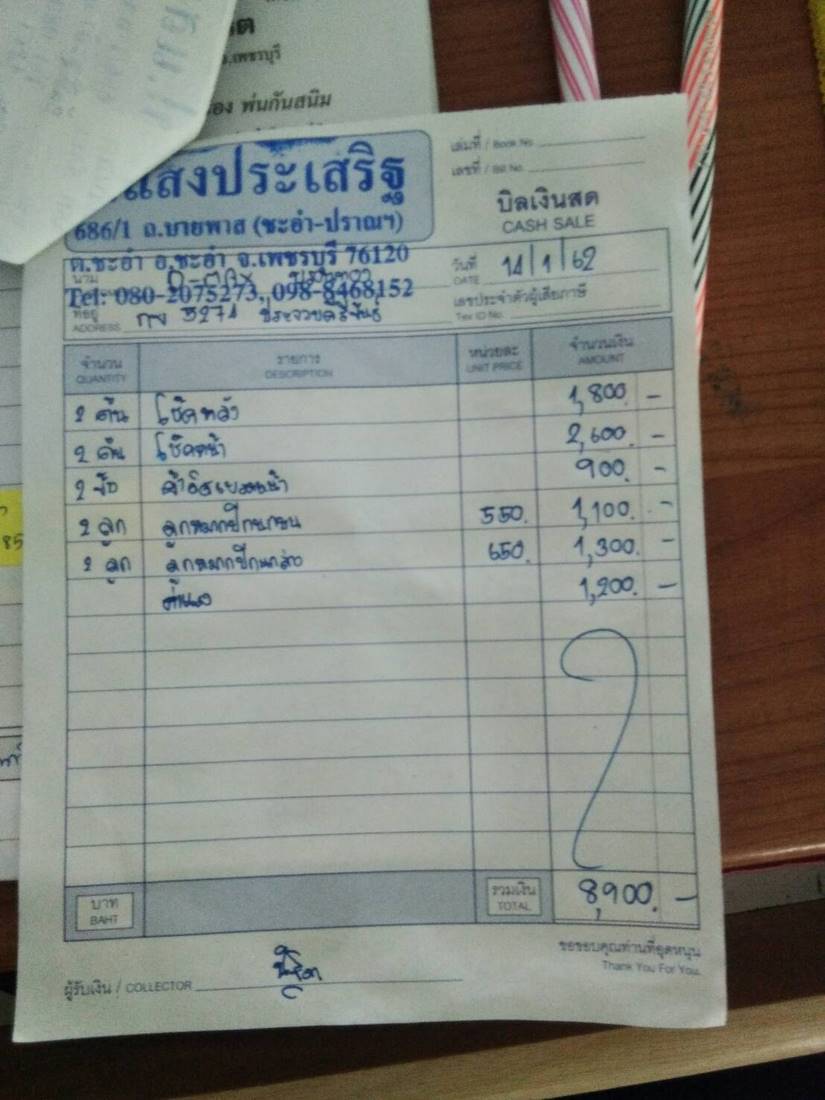 ต
จ.เพชรบุรี
อง พ่นกันสนิม
แสงประเสริฐ
686/1 ถ.บายพาส (ชะอำ-ปราณฯ)
ต.ชะอำ อ.ชะอำ จ.เพชรบุรี 76120
Tel: 080-2075273, 098-8468152
เล่มที่ / Book No.
เลขที่ / Bill No.
บิลเงินสด
CASH SALE
นาม D-MAX
วันที่ DATE 14/1/62
ที่อยู่ ADDRESS กง 5271 ประจวบคีรีขันธ์
เลขประจำตัวผู้เสียภาษี
Tax ID No.
จำนวน รายการ หน่วยละ จำนวนเงิน
QUANTITY DESCRIPTION UNIT PRICE AMOUNT
2 ต้น โช๊คหลัง 1,800.-
2 ต้น โช๊คหน้า 2,600.-
2 900.-
2 ลูก ลูกหมากปีกนกบน 550. 1,100.-
2 ลูก ลูกหมากปีกนกล่าง 650. 1,300.-
ค่าแรง 1,200.-
บาท
BAHT
รวมเงิน
TOTAL
8,900.-
ขอขอบคุณท่านที่อุดหนุน
Thank You For You.
ผู้รับเงิน / COLLECTOR
85